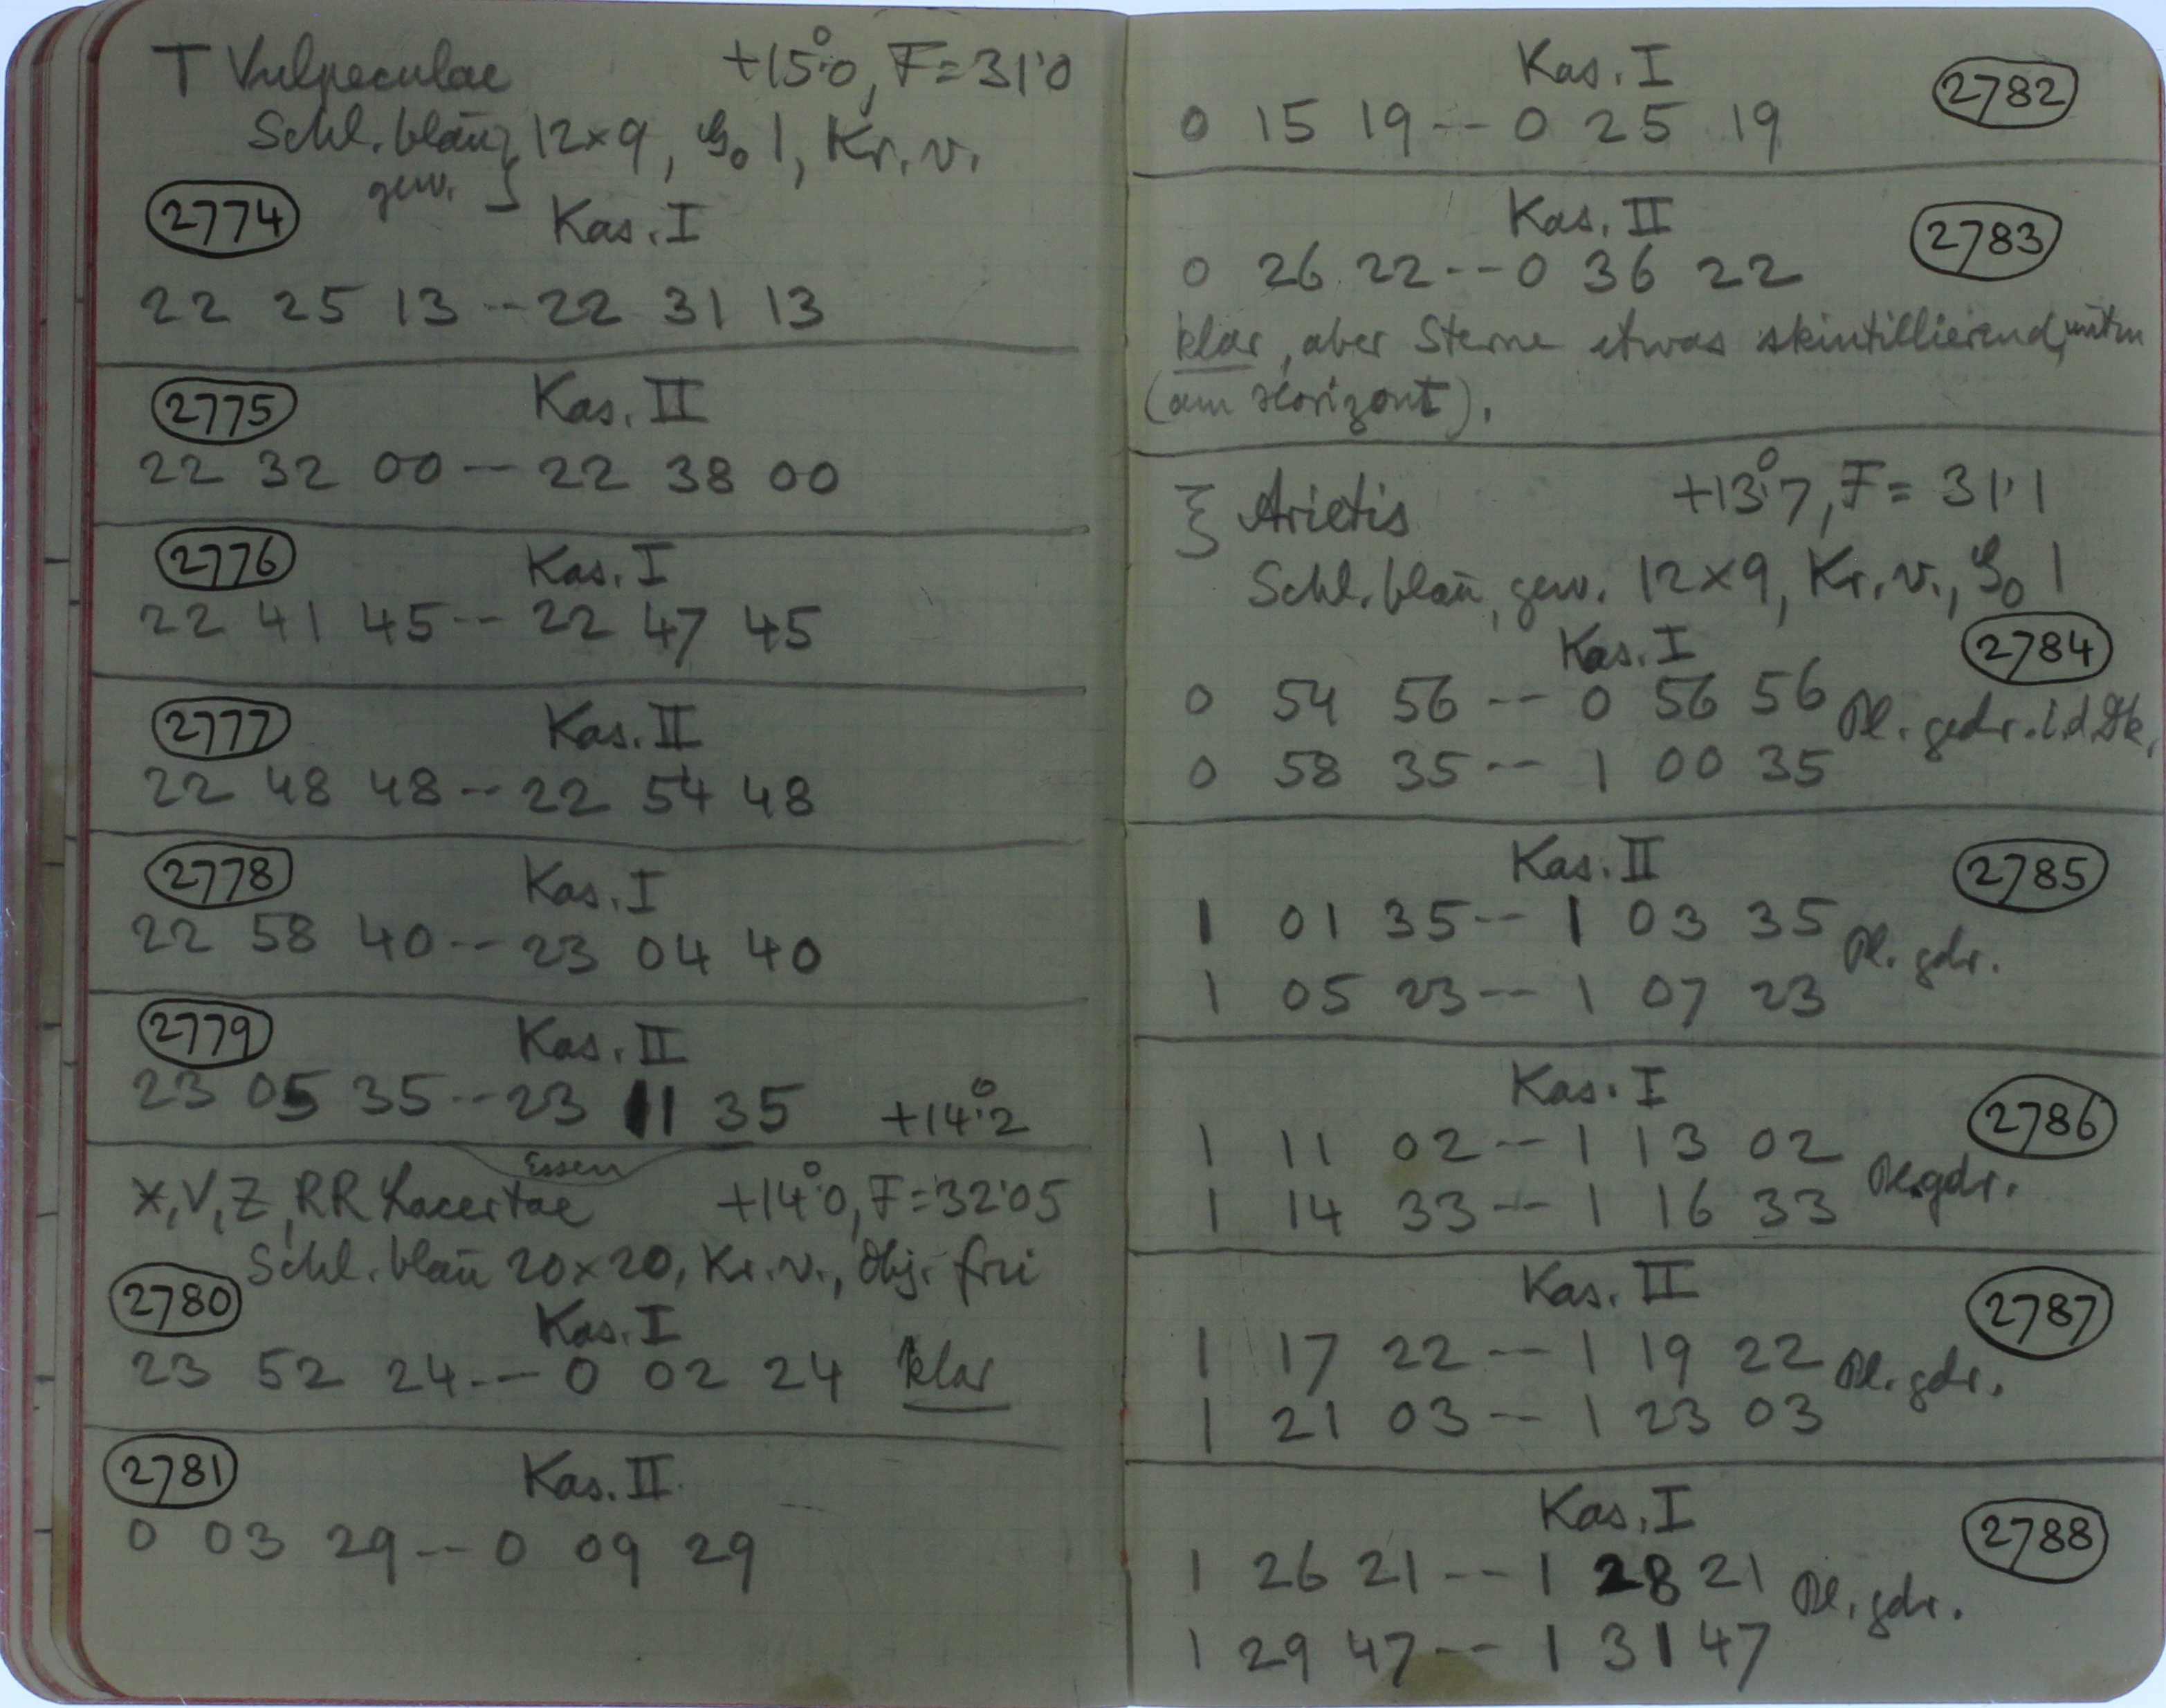 T Vulpeculae +15°.0, F=31'0
Schl. blau, 12×9, G₀ 1, Kr. v.
gew.
2774 Kas. I
22 25 13 -- 22 31 13
2775 Kas. II
22 32 00 -- 22 38 00
2776 Kas. I
22 41 45 -- 22 47 45
2777 Kas. II
22 48 48 -- 22 54 48
2778 Kas. I
22 58 40 -- 23 04 40
2779 Kas. II
23 05 35 -- 23 11 35 +14°.2
Essen
X, V, Z, RR Lacertae +14°.0, F=32'05
Schl. blau 20×20, Kr. v., Obj. frei
2780 Kas. I
23 52 24 -- 0 02 24 klar
2781 Kas. II
0 03 29 -- 0 09 29
Kas. I 2782
0 15 19 -- 0 25 19
Kas. II 2783
0 26 22 -- 0 36 22
klar, aber Sterne etwas skintillierend,
(am Horizont).
ξ Arietis +13°.7, F = 31'1
Schl. blau, gew. 12×9, Kr. v., G₀ 1
Kas. I 2784
0 54 56 -- 0 56 56 Pl. gedr. i. d. Dk.
0 58 35 -- 1 00 35
Kas. II 2785
1 01 35 -- 1 03 35 Pl. gdr.
1 05 23 -- 1 07 23
Kas. I 2786
1 11 02 -- 1 13 02 Pl. gdr.
1 14 33 -- 1 16 33
Kas. II 2787
1 17 22 -- 1 19 22 Pl. gdr.
1 21 03 -- 1 23 03
Kas. I 2788
1 26 21 -- 1 28 21 Pl. gdr.
1 29 47 -- 1 31 47